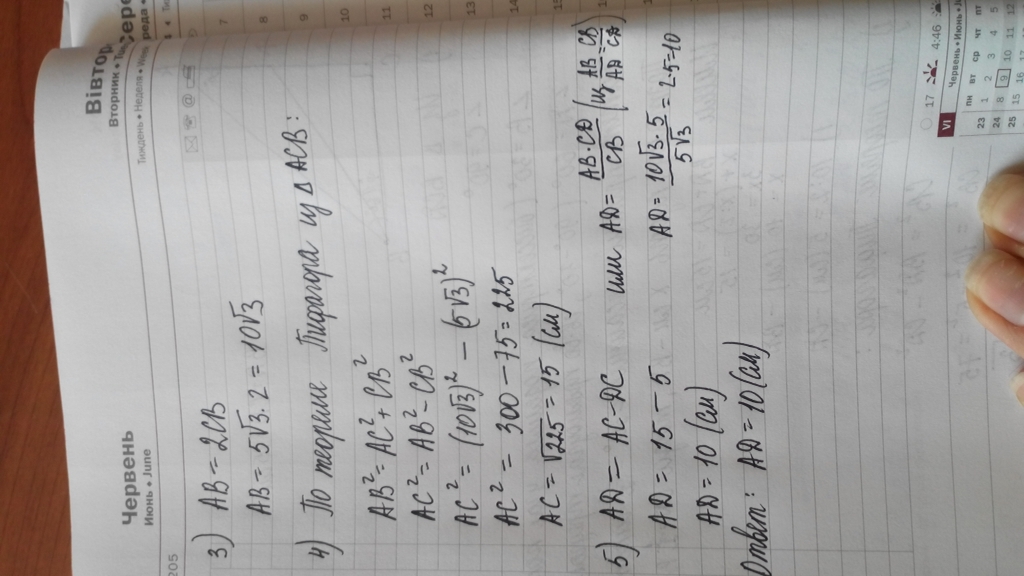 Червень
Июнь • June
Вівтор
Вторник • Tu
Тиждень • Неделя • We
205
3) AB = 2CB
AB = 5√3 · 2 = 10√3
4) По теореме Пифагора из Δ ACB:
AB² = AC² + CB²
AC² = AB² - CB²
AC² = (10√3)² - (5√3)²
AC² = 300 - 75 = 225
AC = √225 = 15 (см)
5) AD = AC - DC или AD = AB·CD/CB (из AB/AD = CB/CD)
AD = 15 - 5 AD = 10√3·5/5√3 = 2·5=10
AD = 10 (см)
Ответ: AD = 10 (см)
7
8
9
10
11
12
13
14
17 4:46
VI Червень • Июнь •
пн вт ср чт пт
23 1 2 3 4 5
24 8 9 10 11 12
25 15 16